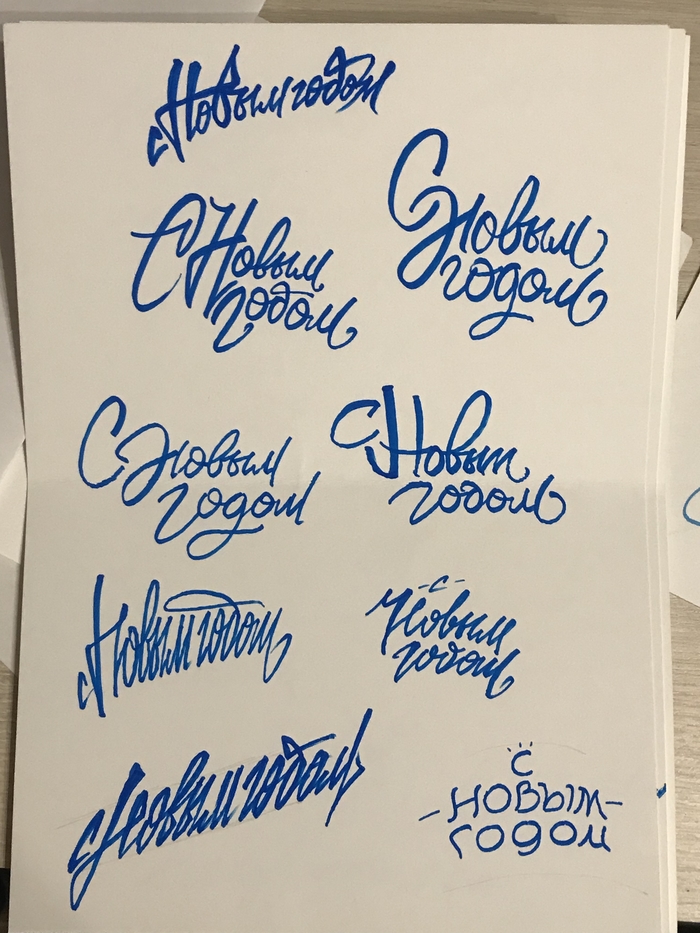 с Новым годом
С Новым
годом
С Новым
годом
С Новым
годом
С Новым
годом
с Новым годом
-с-
Новым
годом
с Новым годом
С
-НОВЫМ-
годом